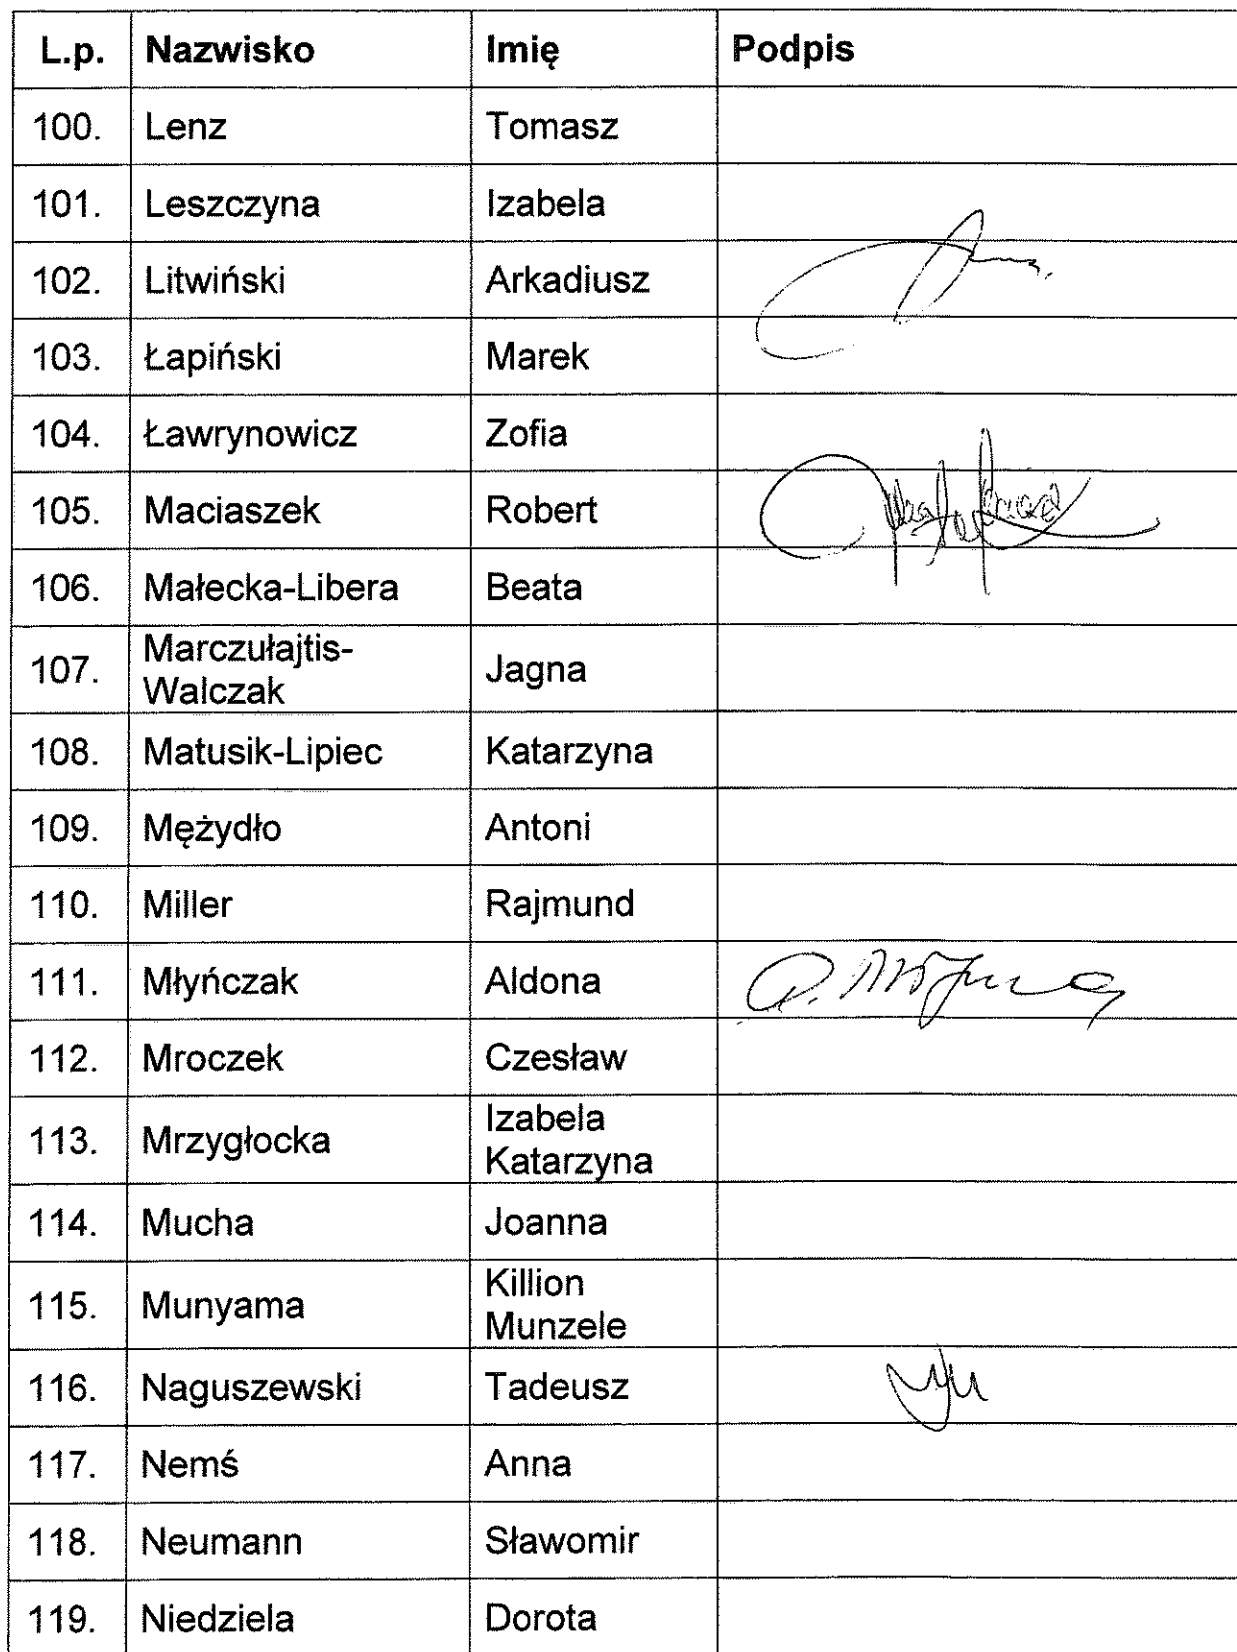 L.p. Nazwisko Imię Podpis
100. Lenz Tomasz
101. Leszczyna Izabela
102. Litwiński Arkadiusz
103. Łapiński Marek
104. Ławrynowicz Zofia
105. Maciaszek Robert
106. Małecka-Libera Beata
107. Marczułajtis-
Walczak Jagna
108. Matusik-Lipiec Katarzyna
109. Mężydło Antoni
110. Miller Rajmund
111. Młyńczak Aldona
112. Mroczek Czesław
113. Mrzygłocka Izabela
Katarzyna
114. Mucha Joanna
115. Munyama Killion
Munzele
116. Naguszewski Tadeusz
117. Nemś Anna
118. Neumann Sławomir
119. Niedziela Dorota